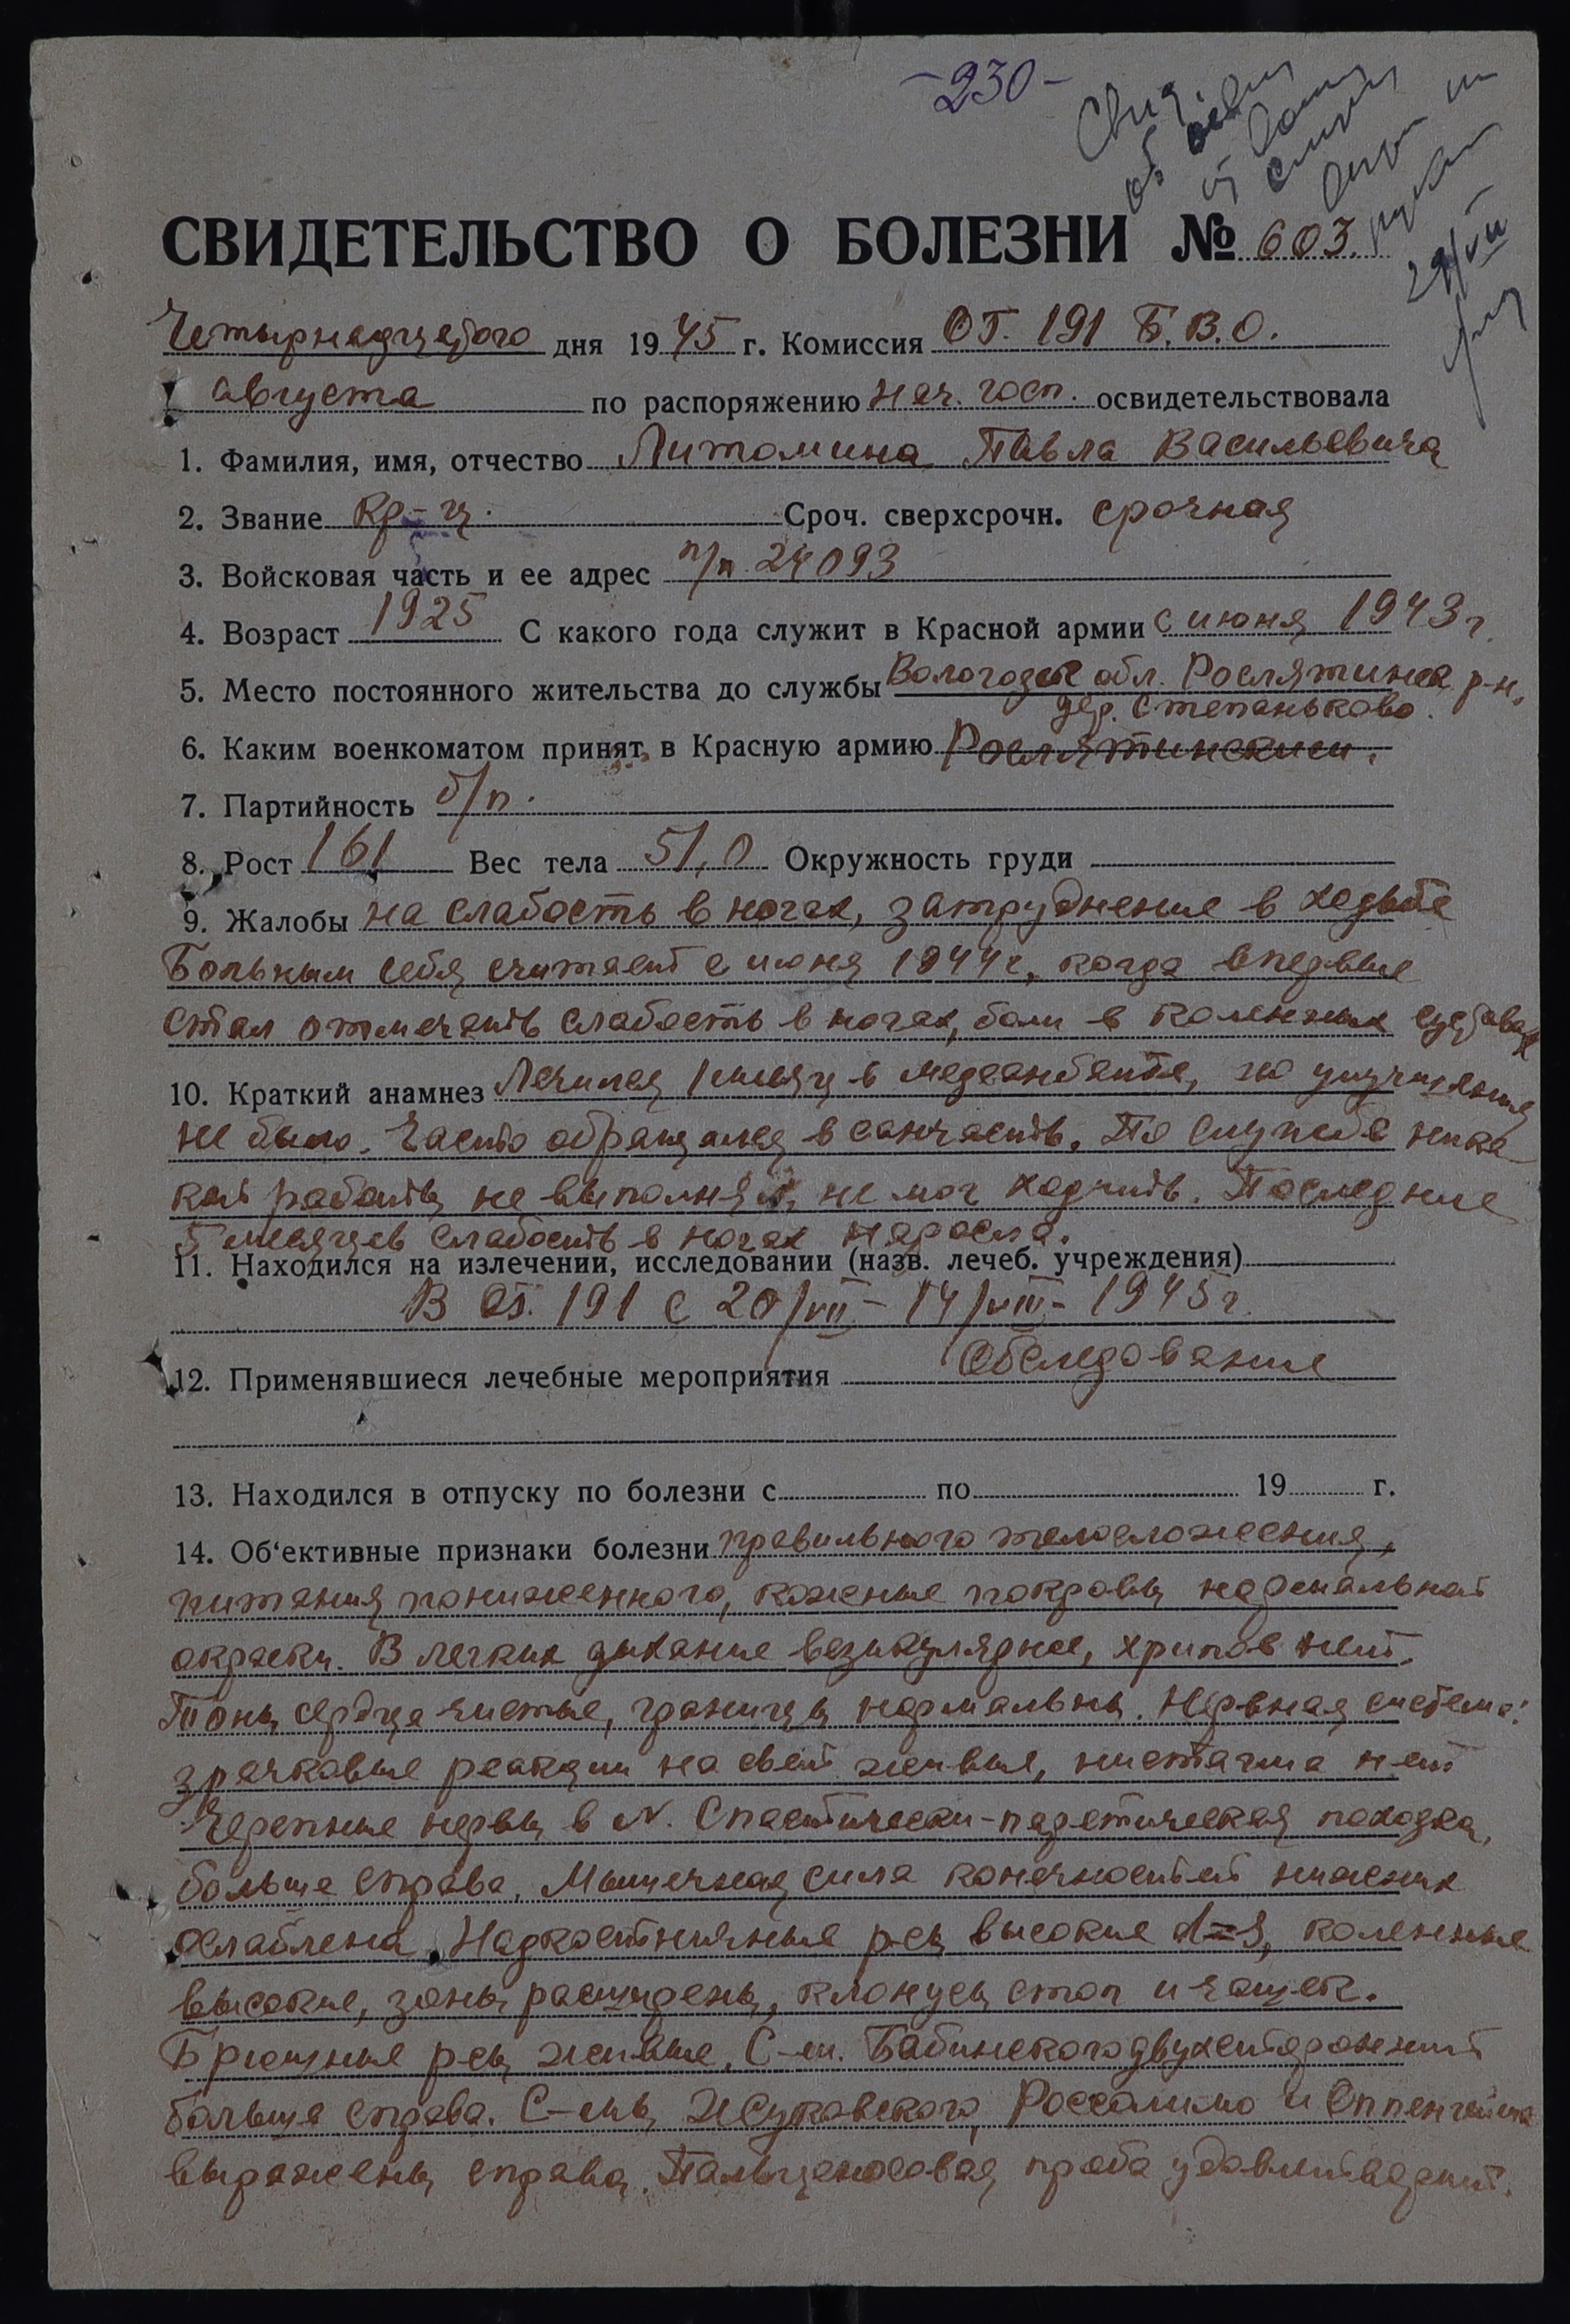 -230-
Свид.
об
29/VII
СВИДЕТЕЛЬСТВО О БОЛЕЗНИ № 603.
Четырнадцатого дня 1945 г. Комиссия ОГ. 191 Б.В.О.
августа по распоряжению нач. госп. освидетельствовала
1. Фамилия, имя, отчество Литомина Павла Васильевича
2. Звание кр-ц. Сроч. сверхсрочн. срочная
3. Войсковая часть и ее адрес п/п 24093
4. Возраст 1925 С какого года служит в Красной армии с июня 1943 г.
5. Место постоянного жительства до службы Вологодск обл. Рослятинск р-н,
дер. Степаньково.
6. Каким военкоматом принят в Красную армию Рослятинским.
7. Партийность б/п.
8. Рост 161 Вес тела 51,0 Окружность груди
9. Жалобы на слабость в ногах, затруднение в ходьбе
Больным себя считает с июня 1944 г, когда впервые
стал отмечать слабость в ногах, боли в коленных суставах
10. Краткий анамнез Лечился 1 месяц в медсанбате, но улучшения
не было. Часто обращался в санчасть. По службе ника-
кой работы не выполнял, не мог ходить. Последние
5 месяцев слабость в ногах наросла.
11. Находился на излечении, исследовании (назв. лечеб. учреждения)
В ОГ. 191 с 20/VII - 14/VIII - 1945 г.
12. Применявшиеся лечебные мероприятия Обследование
13. Находился в отпуску по болезни с по 19 г.
14. Об'ективные признаки болезни правильного телосложения,
питания пониженного, кожные покровы нормальной
окраски. В легких дыхание везикулярное, хрипов нет.
Тоны сердца чистые, границы нормальны. Нервная система:
зрачковые реакции на свет живые, нистагма нет
Черепные нервы в N. Спастически-паретическая походка,
больше справа. Мышечная сила конечностей нижних
ослаблена. Надкостничные р-сы высокие d=s, коленные
высокие, зоны расширены, клонусы стоп и чашек.
Брюшные р-сы живые. С-м. Бабинского двухсторонний
больше справа. С-мы Жуковского, Россолимо и Оппенгейма
выражены справа. Пальценосовая проба удовлетворит.